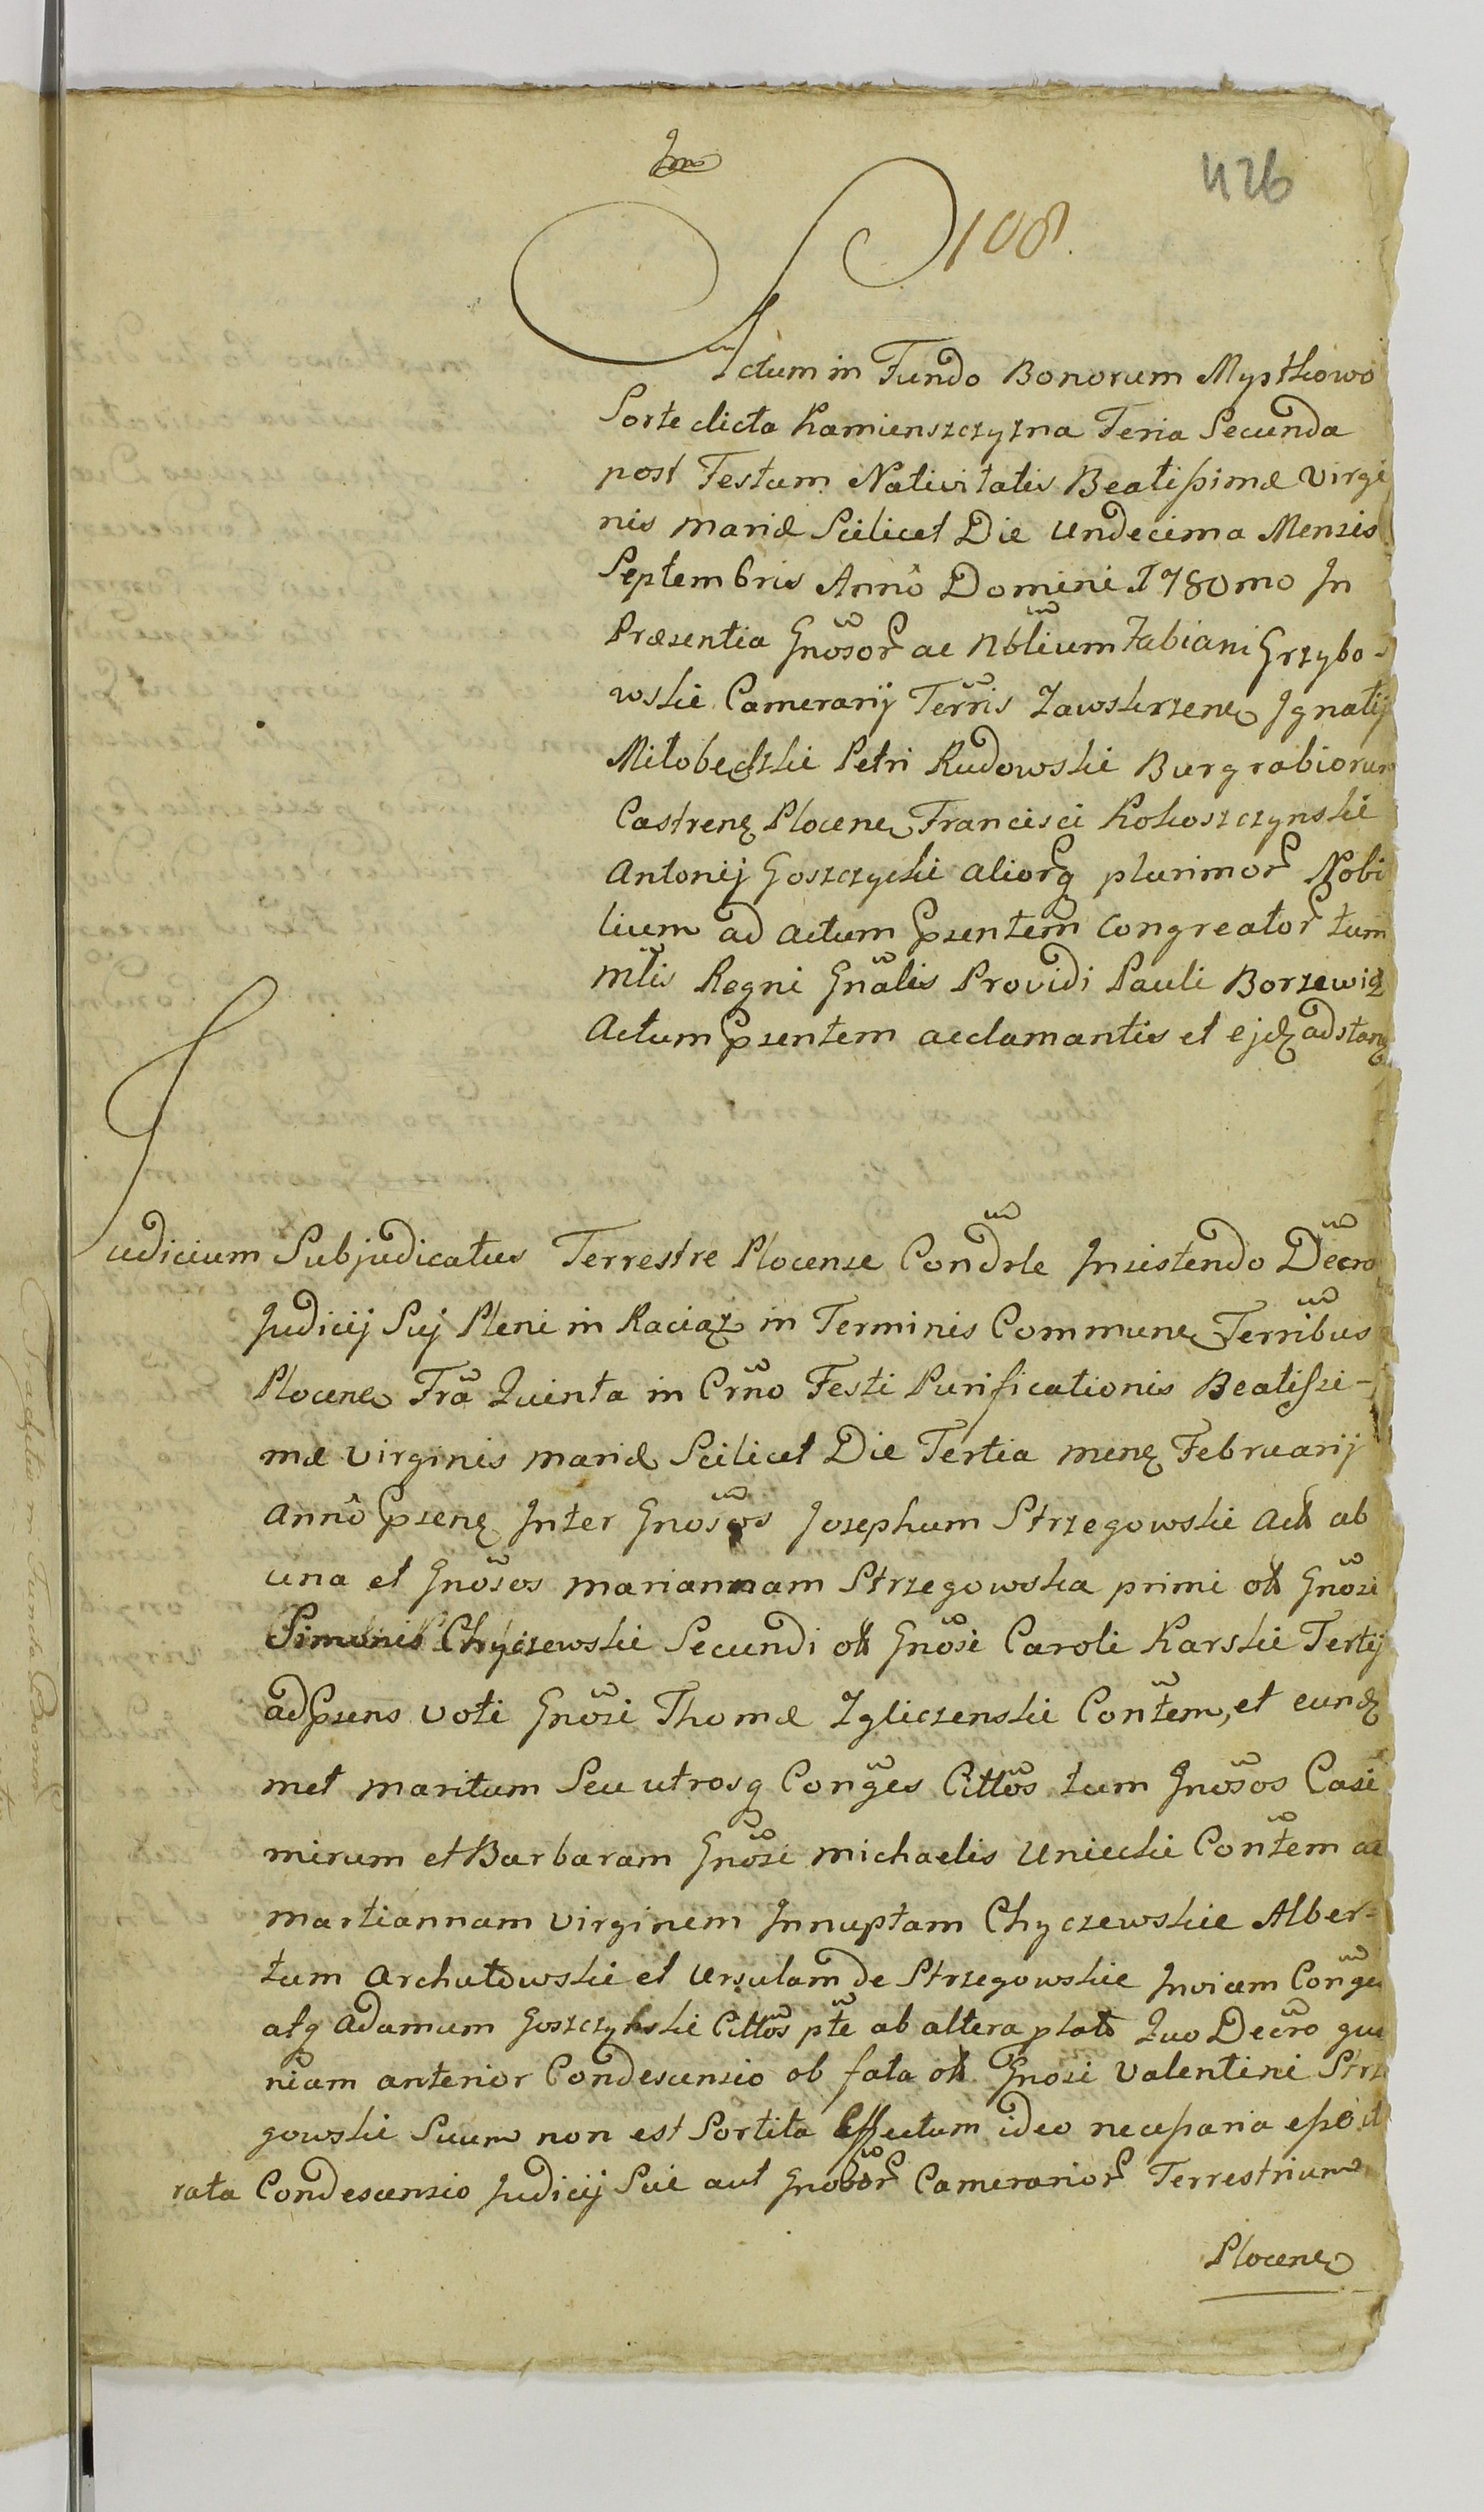 Im
426
108.
Actum in Fundo Bonorum Mystkowo
Sorte dicta Kamienszczyzna Feria Secunda
post Festum Nativitatis Beatissimæ Virgi
nis Mariæ Scilicet Die Undecima Mensis
Septembris Annô Domini 1780mo In
Præsentia Gnosor ac Nblium Fabiani Grzybo-
wski Camerarij Terris Zawskrzenę Ignatij
Miłobędzki Petri Rudowski Burgrabiorum
Castrenę Plocenę Francisci Kokoszczynski
Antonij Goszczycki aliorq plurimor Nobi
lium ad actum Pzentem Congreator tum
Mtlis Regni Gnalis Providi Pauli Borzewią
Actum Pzentem acclamantis et ejdz adstanę
Judicium Subjudicatus Terrestre Plocense Condrle Insistendo Decro
Judicij Suj Pleni in Raciąż in Terminis Communę Terribus
Plocenę Fra Quinta in Crno Festi Purificationis Beatissi-
mæ Virginis Mariæ Scilicet Die Tertia menę Februarij
Annô Pzenę Inter Gnosos Josephum Strzegowski Act ab
una et Gnosos Mariannam Strzegowska primi ol Gnosi
Simonis Chyczewski Secundi ol Gnosi Caroli Karski Tertij
ad Pzens voti Gnosi Thomæ Zgliczenski Contem, et eundz
met maritum Seu utrosq Conges Cittos tum Gnosos Casi
mirum et Barbaram Gnosi Michaelis Uniecki Contem ac
Martiannam Virginem Innuptam Chyczewskie Alber=
tum Archutowski et Ursulam de Strzegowskie Invicem Conges
atq Adamum Goszczynski Cittos pte ab altera plato Quo Decro quo
niam anterior Condescensio ob fata ol Gnosi Valentini Strze
gowski Suum non est Sortita Effectum ideo necessaria esse
rata Condescensio Judicij Sui aut Gnosor Camerarior Terrestrium
Plocenę